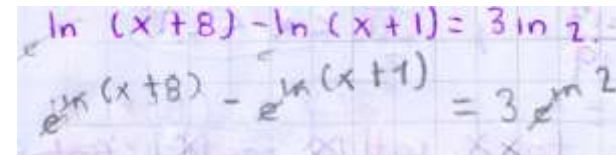 ln (x+8) - ln (x+1) = 3 ln 2
e^ln (x+8) - e^ln (x+1) = 3 e^ln 2